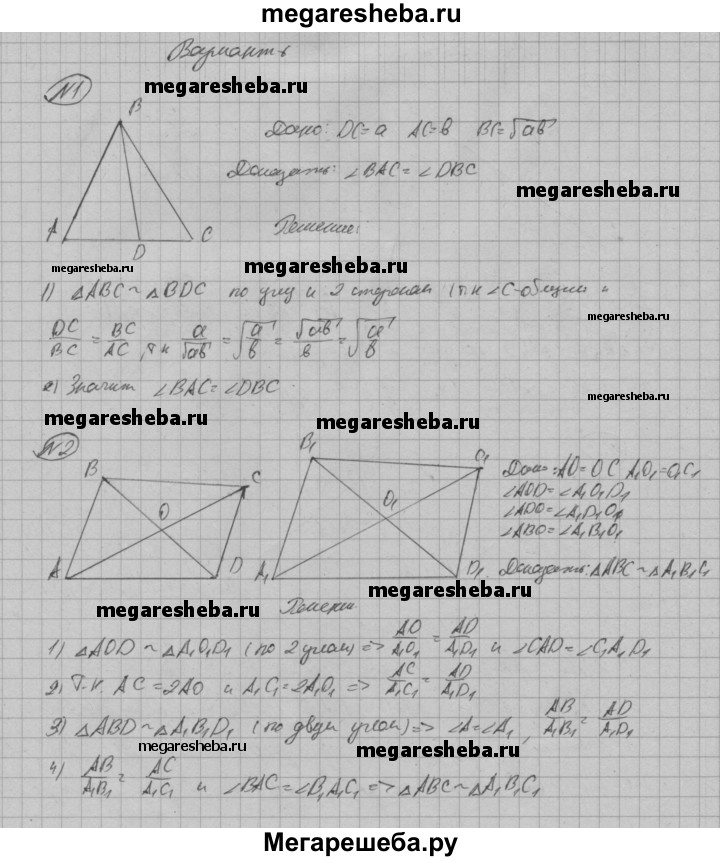 megaresheba.ru
Вариант 6
№1
megaresheba.ru
B
Дано: DC=a AC=b BC=√ab
Доказать: ∠BAC=∠DBC
megaresheba.ru
A D C
Решение:
megaresheba.ru
megaresheba.ru
1) △ABC ~ △BDC по углу и 2 сторонам (т.к ∠C-общий и
megaresheba.ru
DC/BC = BC/AC, т.к a/√ab = √a/b = √ab/b = √a/b
2) Значит ∠BAC=∠DBC
megaresheba.ru
megaresheba.ru
№2
megaresheba.ru
B C O A D
B₁ C₁ O₁ A₁ D₁
Дано: AO=OC A₁O₁=O₁C₁
∠AOD=∠A₁O₁D₁
∠ADO=∠A₁D₁O₁
∠ABO=∠A₁B₁O₁
Доказать: △ABC ~ △A₁B₁C₁
megaresheba.ru
megaresheba.ru
Решение
1) △AOD ~ △A₁O₁D₁ (по 2 углам) => AO/A₁O₁ = AD/A₁D₁ и ∠CAD=∠C₁A₁D₁
2) Т.к. AC=2AO и A₁C₁=2A₁O₁ => AC/A₁C₁ = AD/A₁D₁
3) △ABD ~ △A₁B₁D₁ (по двум углам) => ∠A=∠A₁, AB/A₁B₁ = AD/A₁D₁
megaresheba.ru
megaresheba.ru
4) AB/A₁B₁ = AC/A₁C₁ и ∠BAC=∠B₁A₁C₁ => △ABC ~ △A₁B₁C₁
megaresheba.ru
Мегарешеба.ру